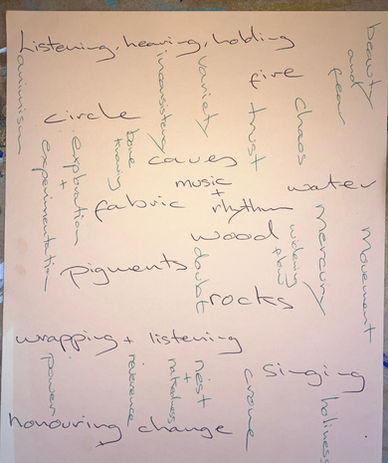 Listening, hearing, holding
beauty and fear
animism
inconsistency
variety
fire
chaos
trust
circle
bone
exploration + experimentation
caves
music + rhythm
water
fabric
wood
mercury
movement
doubt
flow
pigments
rocks
wrapping + listening
power
reverence
nest + nakedness
crone
singing
holiness
honouring change